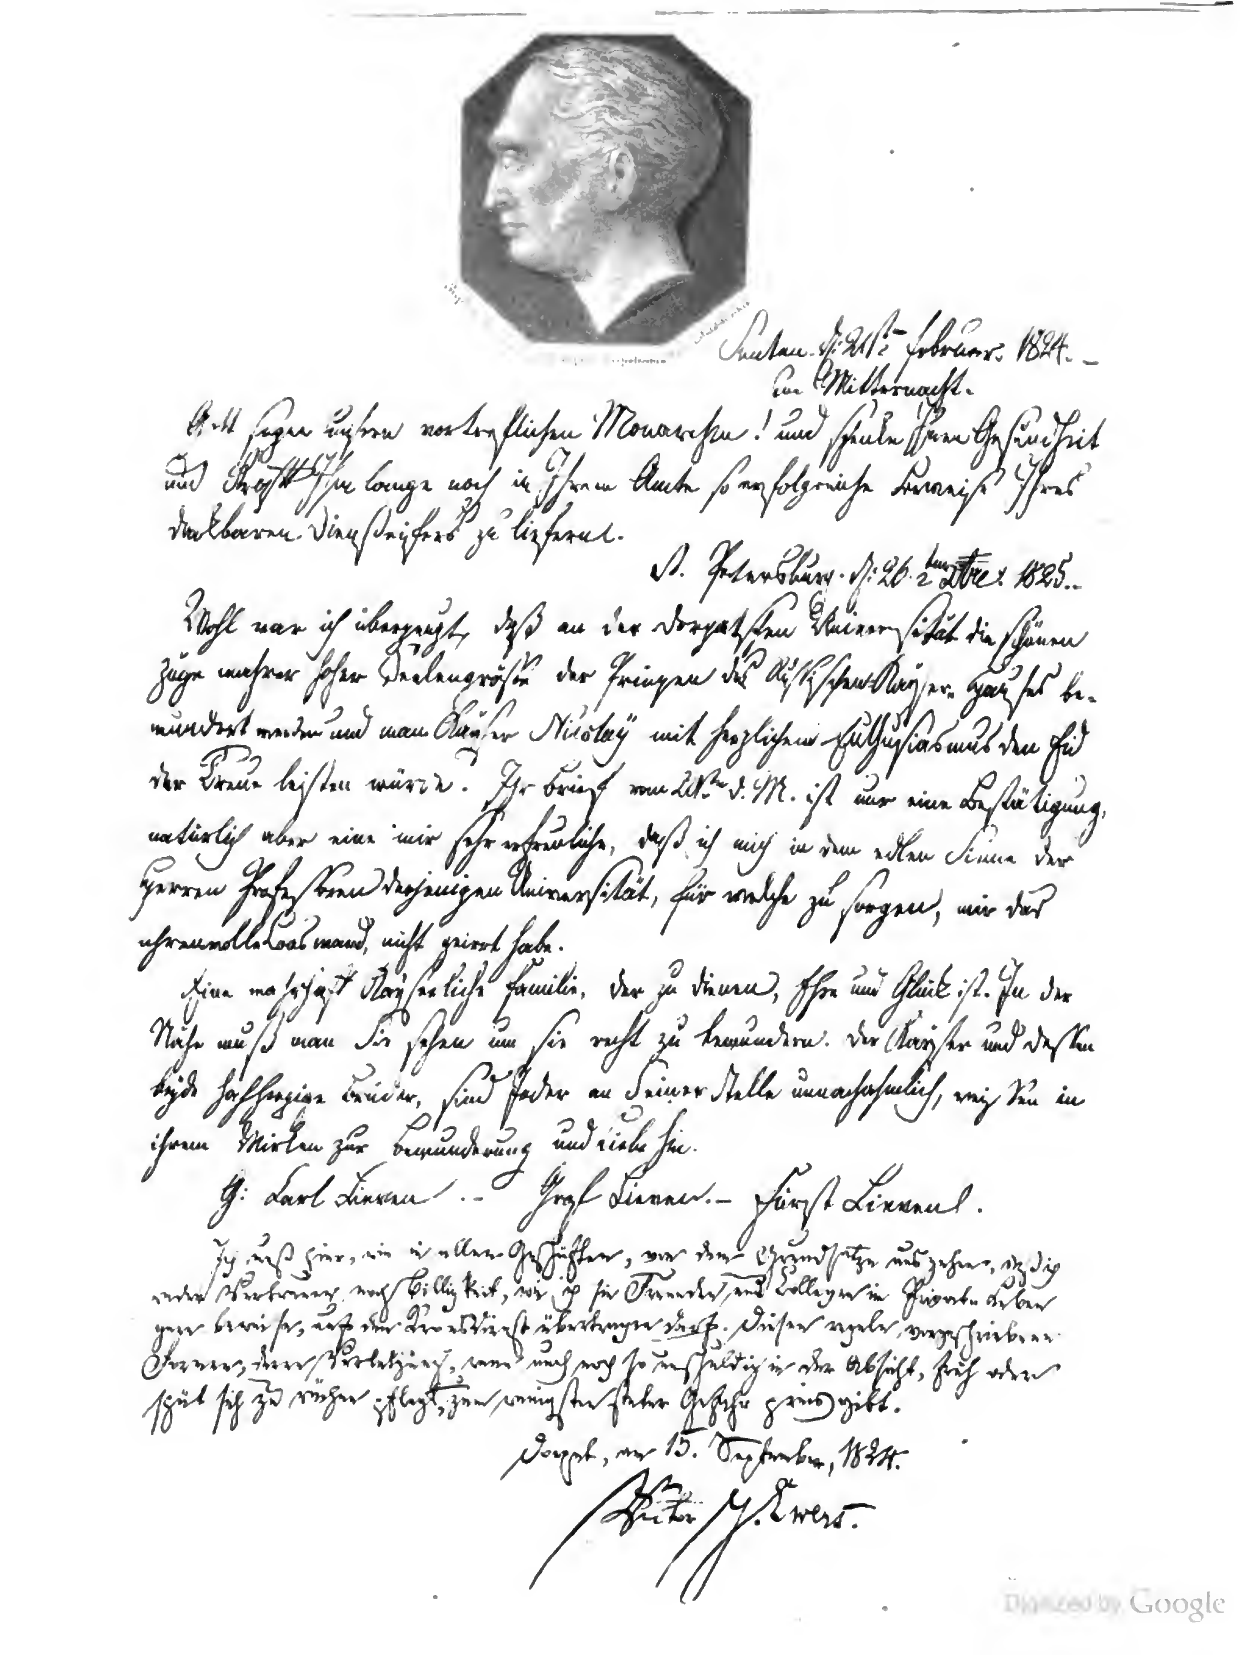 Senten. d: 21ste Februar. 1824. –
um Mitternacht.
Gott segne unsern vortreflichen Monarchen! und schenke Ihnen Gesundheit
und Kraft Ihm lange noch in Ihrem Amte so erfolgreiche Beweise Ihres
dankbaren Diensteifers zu liefern.
St. Petersburg. d: 26. 1825.
Wohl war ich überzeugt, daß an der Dorpatschen Universität die schönen
Züge wahrer hoher Seelengröße der Prinzen des Russischen Kayser Hauses be-
wundert werden und man Kayser Nicolay mit herzlichem Enthusiasmus den Eid
der Treue leisten würde. Ihr Brief vom d. M. ist nur eine Bestätigung,
natürlich aber eine mir sehr erfreuliche, daß ich mich in dem edlen Sinne der
Herren Professoren derjenigen Universität, für welche zu sorgen, mir das
ehrenvolle Loos ward, nicht geirrt habe.
Eine wahrhaft Kayserliche Familie, der zu dienen, Ehre und Glück ist. In der
Nähe muß man Sie sehen um sie recht zu bewundern. Der Kayser und dessen
beyde hochherzige Brüder, sind Jeder an Seiner Stelle unnachahmlich, reissen in
ihrem Wirken zur Bewunderung und Liebe hin.
G: Carl Lieven .– Graf Lieven. – Fürst Lieven.
Ich muß hier, wie in allen Geschäften, von dem Grundsatze ausgehen, daß ich
weder Vertrauen noch Billigkeit, wie ich sie Freunden und Collegen im Privat Leben
gern beweise, auf den Kronsdienst übertragen darf. Dieser regeln vorgeschriebene
Formen, deren Verletzung, wenn auch noch so unschuldig in der Absicht, früh oder
spät sich zu rächen pflegt, zum wenigsten steter Gefahr preis gibt.
Dorpat, am 15. September, 1824.
Gustav Ewers.
Digitized by Google